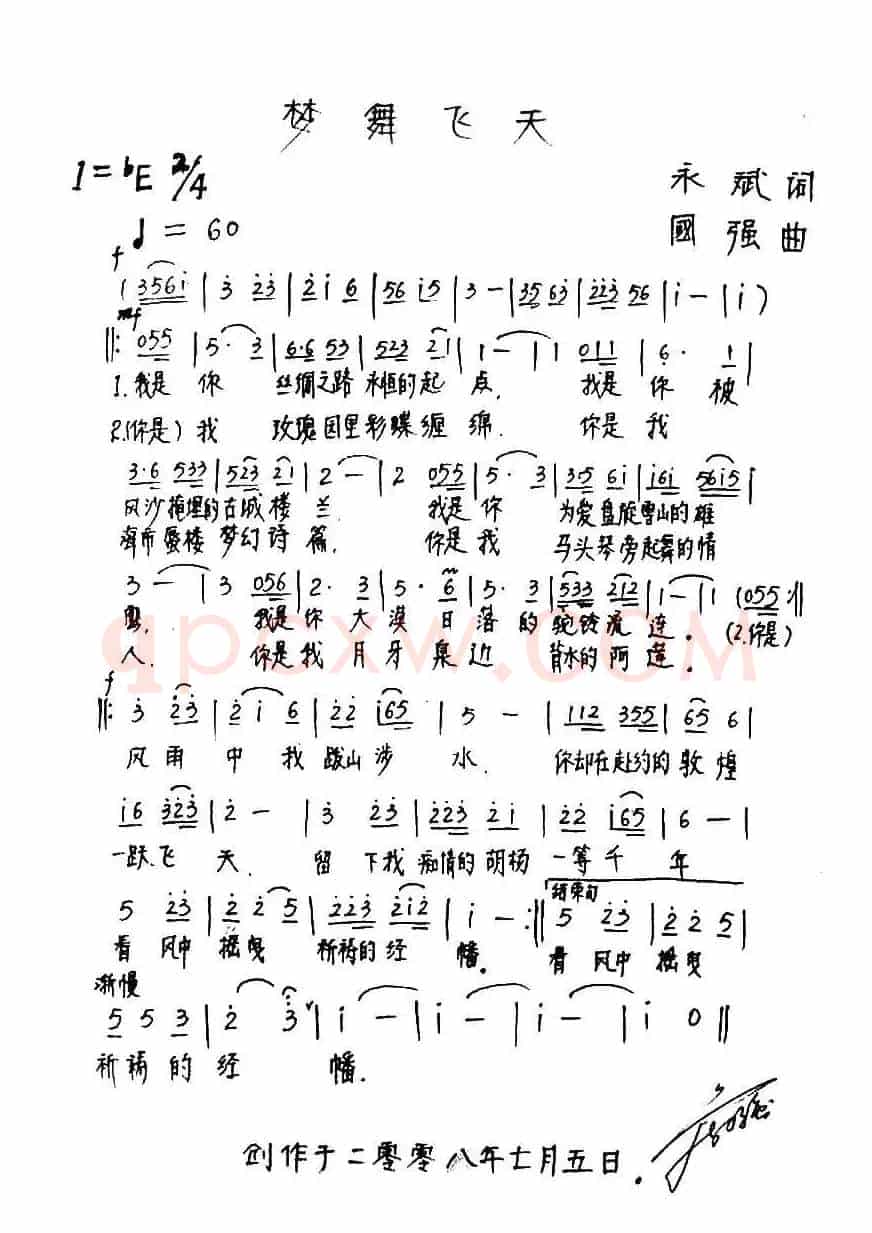 梦舞飞天
1=bE 2/4
永斌词
♩=60
國强曲
f
(3561̇ | 3̇ 2̇3̇ | 2̇1̇ 6 | 56 1̇5 | 3 - | 35 63̇ | 2̇2̇3̇ 56 | 1̇ - | 1̇ )
mf
‖: 055 | 5· 3 | 6·6 53 | 523 21 | 1 - | 1 011 | 6· 1 |
1.我是 你 丝绸之路 永恒的起 点, 我是 你 被
2.(你是)我 玫瑰园里彩蝶缠 绵. 你是 我
3·6 533 | 523 21 | 2 - | 2 055 | 5· 3 | 35 61̇ | 1̇61̇ 561̇5 |
风沙掩埋的古城楼 兰. 我是你 为爱盘旋雪山的雄
海市蜃楼 梦幻诗 篇. 你是我 马头琴旁起舞的情
3 - | 3 056 | 2· 3 | 5· 6 | 5· 3 | 533 212 | 1 - | 1 (055 :‖
鹰. 我是你 大 漠 日 落 的 驼铃流 连。 (2.你是)
人. 你是我 月 牙 泉 边 背水的 阿 莲。
qpcxw.COM
f
‖: 3̇ 2̇3̇ | 2̇1̇ 6 | 2̇2̇ 1̇65 | 5 - | 112 355 | 65 6 |
风 雨 中 我 跋山 涉 水. 你却在赴约的 敦 煌
1̇6 3̇2̇3̇ | 2̇ - | 3̇ 2̇3̇ | 2̇2̇3̇ 2̇1̇ | 2̇2̇ 1̇65 | 6 - |
一跃飞 天. 留 下我 痴情的胡杨 一等 千 年
结束句
5 2̇3̇ | 2̇ 2̇ 5 | 2̇2̇3̇ 2̇1̇2̇ | 1̇ - :‖ 5 2̇3̇ | 2̇ 2̇ 5 |
看 风中 摇曳 祈祷的 经 幡。 看 风中 摇曳
渐慢
5 5 3 | 2̇ 3̇ | 1̇ - | 1̇ - | 1̇ - | 1̇ 0 ‖
祈祷 的 经 幡.
创作于二零零八年七月五日.